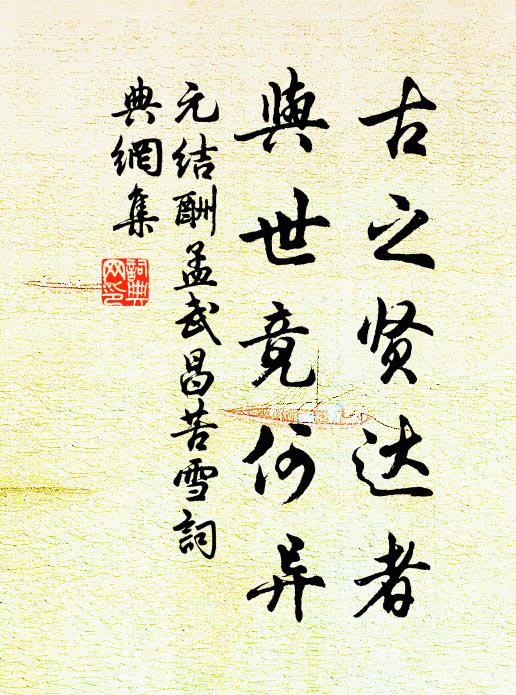 古之贤达者
與世竟何异
元结酬孟武昌苦雪詞
典網集
詞典
网印